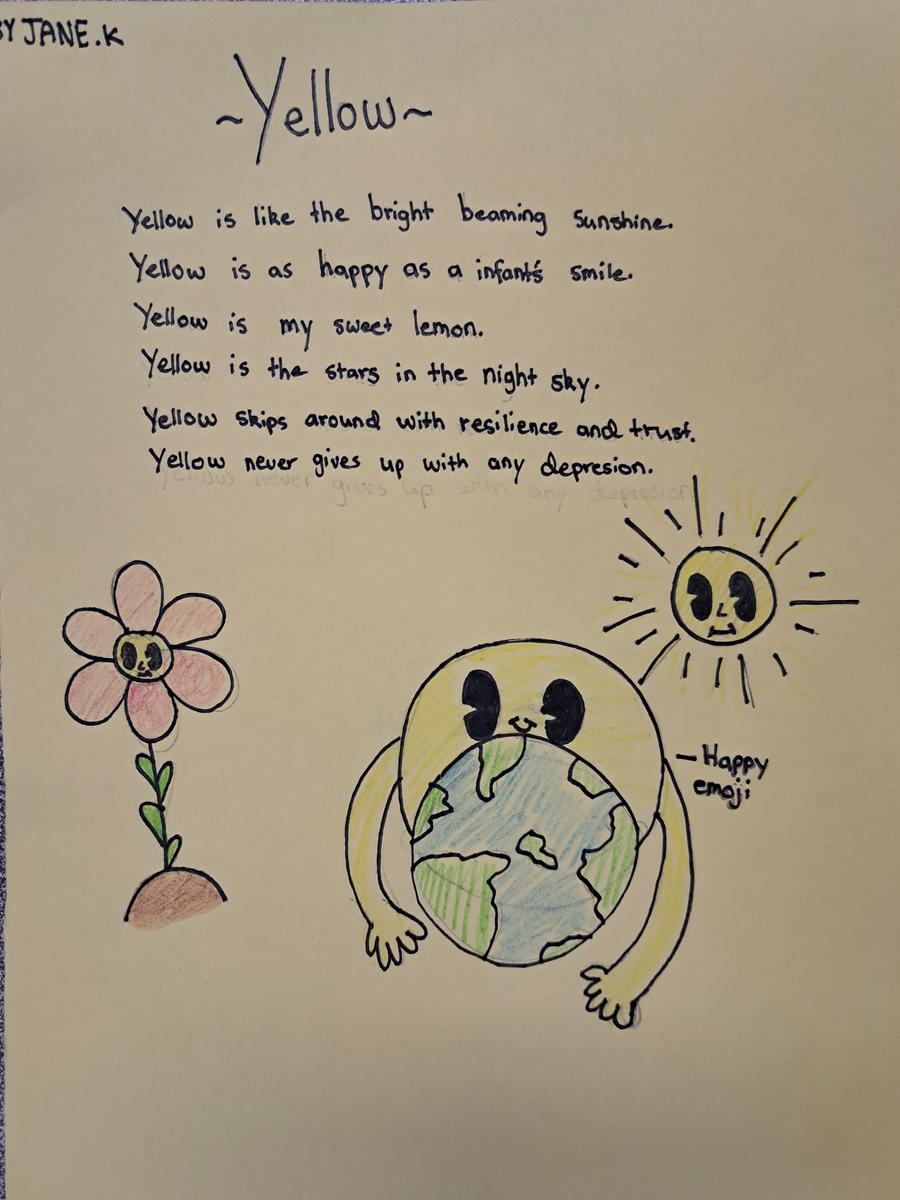 BY JANE.K
~Yellow~
Yellow is like the bright beaming sunshine.
Yellow is as happy as a infant's smile.
Yellow is my sweet lemon.
Yellow is the stars in the night sky.
Yellow skips around with resilience and trust.
Yellow never gives up with any depresion.
Yellow never gives up with any depresion
— Happy
emoji